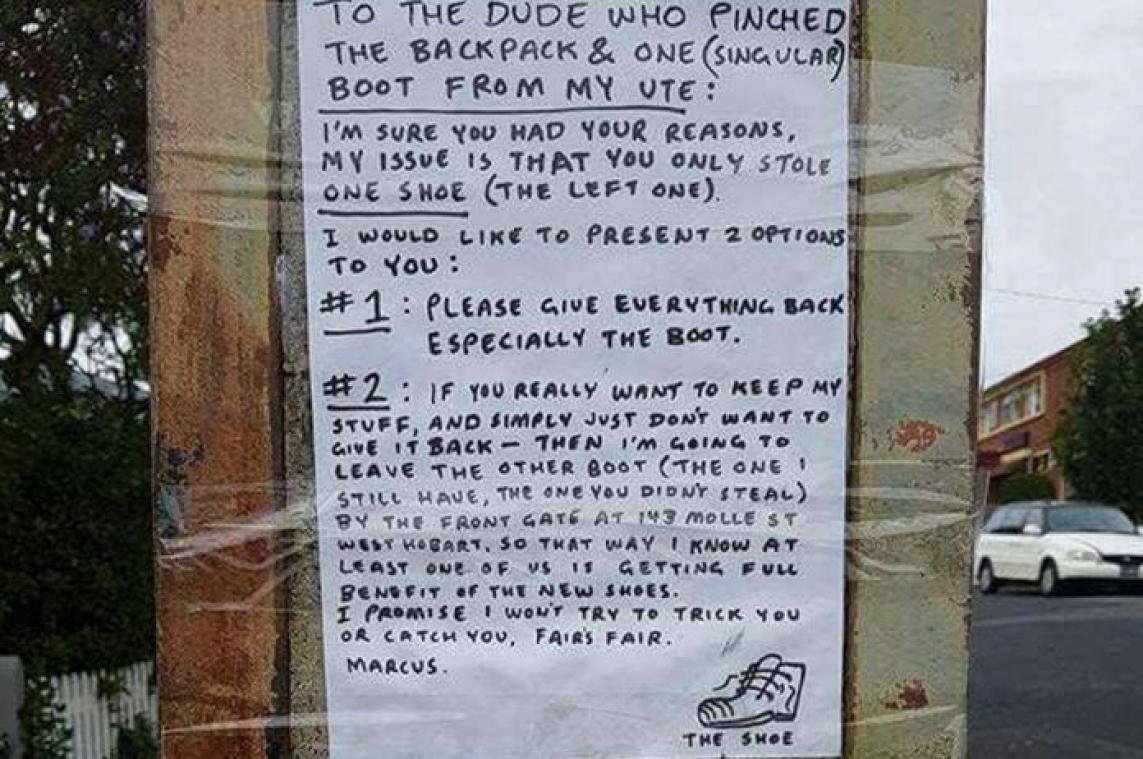 TO THE DUDE WHO PINCHED
THE BACKPACK & ONE (SINGULAR)
BOOT FROM MY UTE:
I'M SURE YOU HAD YOUR REASONS,
MY ISSUE IS THAT YOU ONLY STOLE
ONE SHOE (THE LEFT ONE).
I WOULD LIKE TO PRESENT 2 OPTIONS
TO YOU:
#1: PLEASE GIVE EVERYTHING BACK
ESPECIALLY THE BOOT.
#2: IF YOU REALLY WANT TO KEEP MY
STUFF, AND SIMPLY JUST DON'T WANT TO
GIVE IT BACK — THEN I'M GOING TO
LEAVE THE OTHER BOOT (THE ONE I
STILL HAVE, THE ONE YOU DIDN'T STEAL)
BY THE FRONT GATE AT 143 MOLLE ST
WEST HOBART. SO THAT WAY I KNOW AT
LEAST ONE OF US IS GETTING FULL
BENEFIT OF THE NEW SHOES.
I PROMISE I WON'T TRY TO TRICK YOU
OR CATCH YOU, FAIR'S FAIR.
MARCUS.
THE SHOE